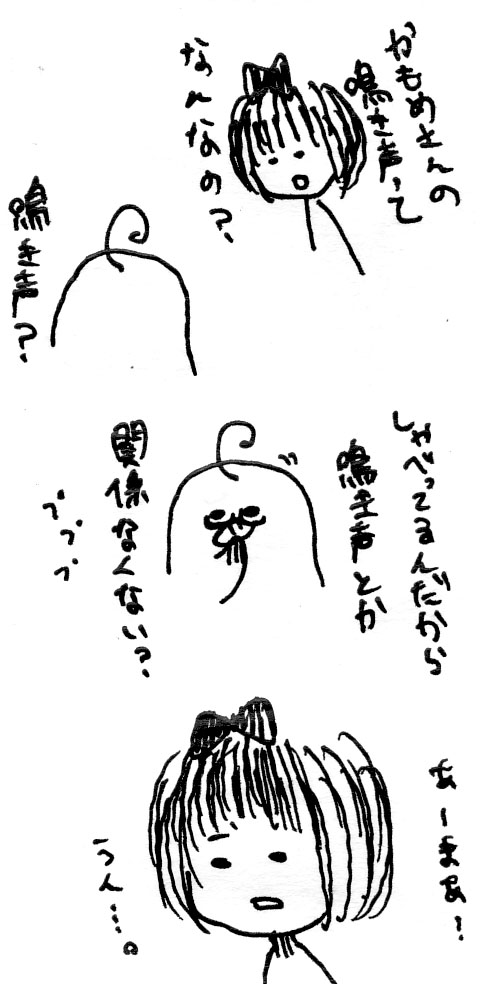 かもめさんの
鳴き声って
なんなの?
鳴き声?
しゃべってるんだから
鳴き声とか
関係なくない?
ブブブ
あーまあ!
うん…。